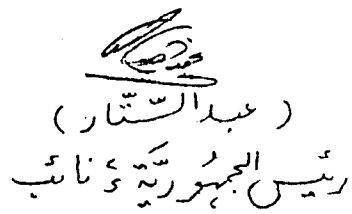 (عبد السَّتَّار)
رئيس الجمهُوريَّة ءُ نائب